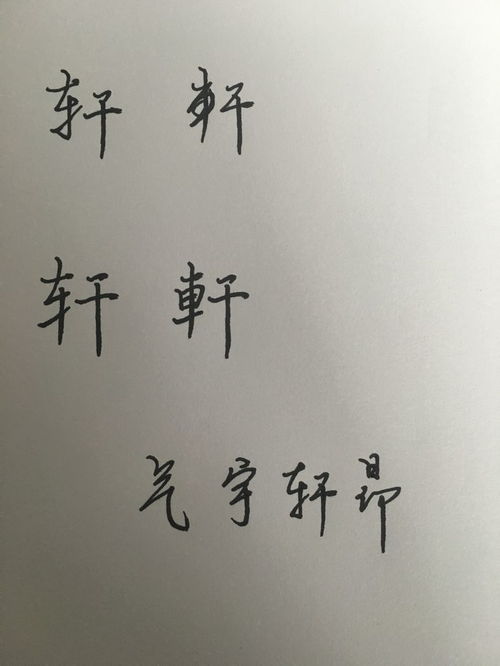 轩 軒
轩 軒
气宇轩昂